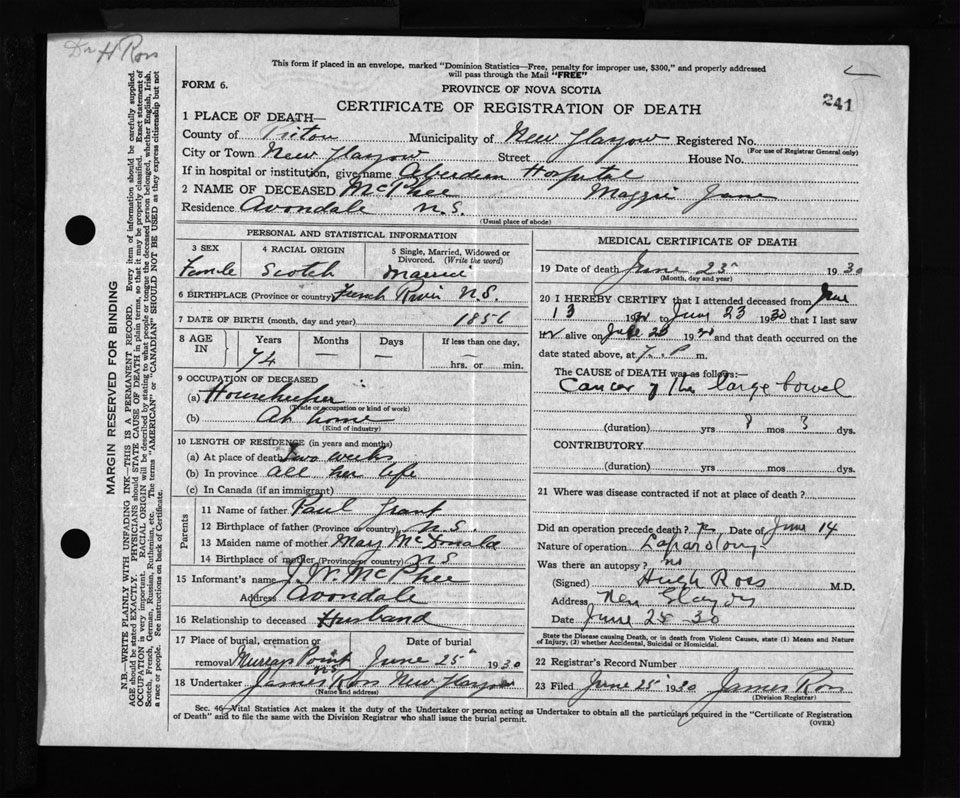 Dr H Ross
This form if placed in an envelope, marked "Dominion Statistics—Free, penalty for improper use, $300," and properly addressed
will pass through the Mail "FREE"
FORM 6.
PROVINCE OF NOVA SCOTIA
241
CERTIFICATE OF REGISTRATION OF DEATH
1 PLACE OF DEATH—
County of Pictou Municipality of New Glasgow Registered No.
(For use of Registrar General only)
City or Town New Glasgow Street House No.
If in hospital or institution, give name Aberdeen Hospital
2 NAME OF DECEASED McPhee Maggie Jane
Residence Avondale N.S.
(Usual place of abode)
PERSONAL AND STATISTICAL INFORMATION
3 SEX 4 RACIAL ORIGIN 5 Single, Married, Widowed or
Divorced. (Write the word)
Female Scotch Married
6 BIRTHPLACE (Province or country) French River N.S.
7 DATE OF BIRTH (month, day and year) 1856
8 AGE IN Years Months Days If less than one day,
74 — — hrs. or min.
9 OCCUPATION OF DECEASED
(a) Housekeeper
(Trade or occupation or kind of work)
(b) At home
(Kind of industry)
10 LENGTH OF RESIDENCE (in years and months)
(a) At place of death Two weeks
(b) In province all her life
(c) In Canada (if an immigrant)
Parents
11 Name of father Paul Grant
12 Birthplace of father (Province or country) N.S.
13 Maiden name of mother Mary McDonald
14 Birthplace of mother (Province or country) N.S
15 Informant's name J. W. McPhee
Address Avondale
16 Relationship to deceased Husband
17 Place of burial, cremation or Date of burial
removal Murrays Point N.S. June 25 1930
18 Undertaker James Ross New Glasgow
(Name and address)
MEDICAL CERTIFICATE OF DEATH
19 Date of death June 23 1930
(Month, day and year)
20 I HEREBY CERTIFY that I attended deceased from June
13 1930 to June 23 1930 that I last saw
her alive on 1930 and that death occurred on the
date stated above, at P. m.
The CAUSE OF DEATH was as follows:—
Cancer of the large bowel
(duration) yrs 8 mos 3 dys.
CONTRIBUTORY
(duration) yrs mos dys.
21 Where was disease contracted if not at place of death?
Did an operation precede death? Date of June 14
Nature of operation Laparotomy
Was there an autopsy? no
(Signed) Hugh Ross M.D.
Address New Glasgow
Date June 25 30
State the Disease causing Death, or in death from Violent Causes, state (1) Means and Nature
of Injury, (2) whether Accidental, Suicidal or Homicidal.
22 Registrar's Record Number
23 Filed June 25 1930 James Ross
(Division Registrar)
Sec. 46—Vital Statistics Act makes it the duty of the Undertaker or person acting as Undertaker to obtain all the particulars required in the "Certificate of Registration
of Death" and to file the same with the Division Registrar who shall issue the burial permit.
(OVER)
MARGIN RESERVED FOR BINDING
N.B.—WRITE PLAINLY WITH UNFADING INK—THIS IS A PERMANENT RECORD. Every item of information should be carefully supplied.
AGE should be stated EXACTLY. PHYSICIANS should STATE CAUSE OF DEATH in plain terms, so that it may be properly classified. Exact statement of
OCCUPATION is very important. RACIAL ORIGIN will be described by stating to what people or tongue the deceased person belonged, whether English, Irish,
Scotch, French, German, Russian, Ruthenian, etc. The terms "AMERICAN" or "CANADIAN" SHOULD NOT BE USED as they express citizenship but not
a race or people. See instructions on back of Certificate.